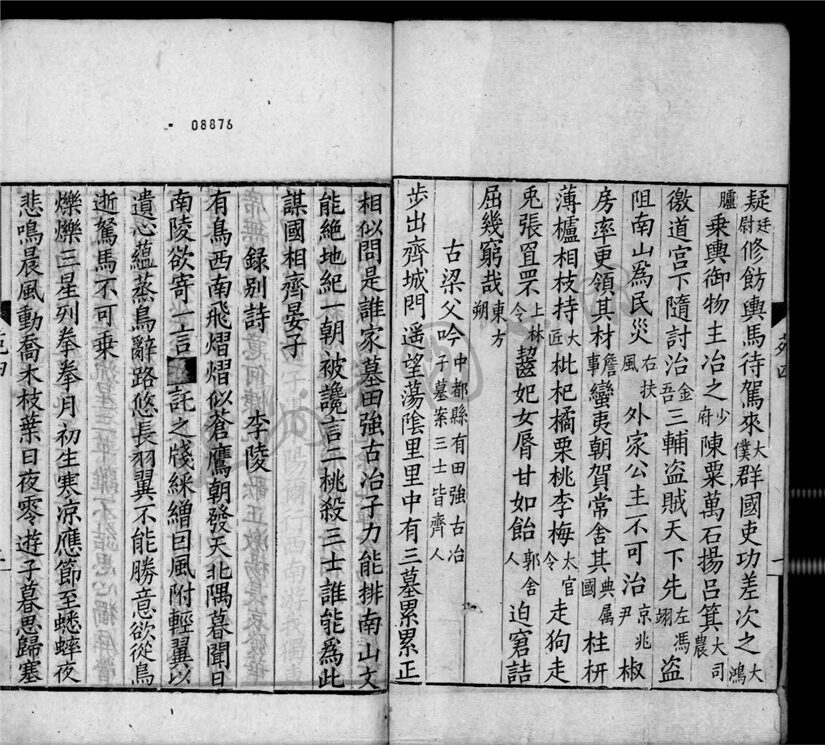 疑廷尉修飭輿馬待駕來大僕群國吏功差次之大鴻
臚乘輿御物主治之少府陳粟萬石揚呂箕大司農
徼道宮下隨討治金吾三輔盜賊天下先左馮翊盜
阻南山為民災右扶風外家公主不可治京兆尹椒
房率更領其材詹事蠻夷朝賀常舍其典屬國柱枅
薄櫨相枝持大匠枇杷橘栗桃李梅太官令走狗走
兎張罝罘上林令齧妃女脣甘如飴郭舍人迫窘詰
屈幾窮哉東方朔
古梁父吟中都縣有田強古冶子墓案三士皆齊人
步出齊城門遥望蕩陰里里中有三墓累累正
相似問是誰家墓田強古冶子力能排南山文
能絶地紀一朝被讒言二桃殺三士誰能為此
謀國相齊晏子
録别詩 李陵
有鳥西南飛熠熠似蒼鷹朝發天北隅暮聞日
南陵欲寄一言託之牋綵繒因風附輕翼以
遺心蘊蒸鳥辭路悠長羽翼不能勝意欲從鳥
逝駑馬不可乗
爍爍三星列拳拳月初生寒凉應節至蟋蟀夜
悲鳴晨風動喬木枝葉日夜零遊子暮思歸塞
08876
苑四
一